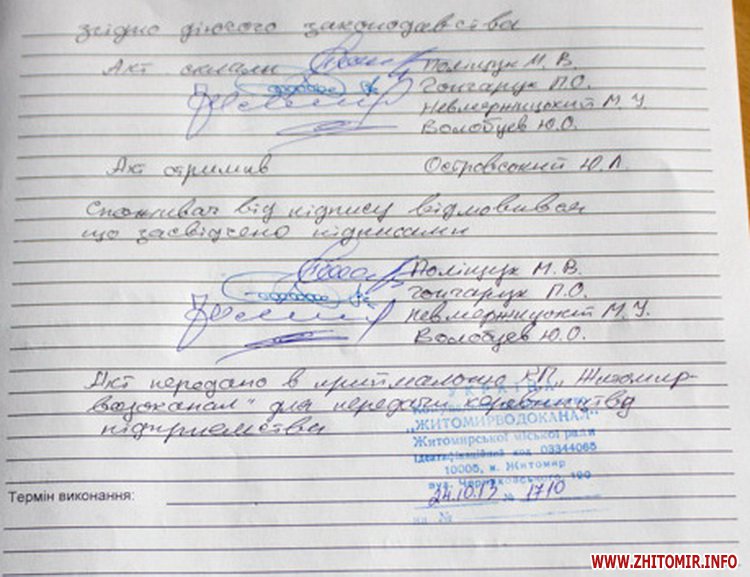 згідно діючого законодавства
Акт склали Поліщук М. В.
Гончарук П.О.
Невмержицкий М. У.
Волобуев Ю.О.
Акт отримав Островський Ю.Л.
Споживач від підпису відмовився
що засвідчено підписами
Поліщук М. В.
Гончарук П.О.
Невмержицкий М. У.
Волобуев Ю.О.
Акт передано в приймальню КП „Житомир-
водоканал" для передачи керівництву
підприємства
УКРАЇНА
"ЖИТОМИРВОДОКАНАЛ"
Житомирської міської ради
Ідентифікаційний код 03344065
10005, м. Житомир
вул. Чуднівського 120
Термін виконання: 24.10.13 № 1710
вх №
WWW.ZHITOMIR.INFO